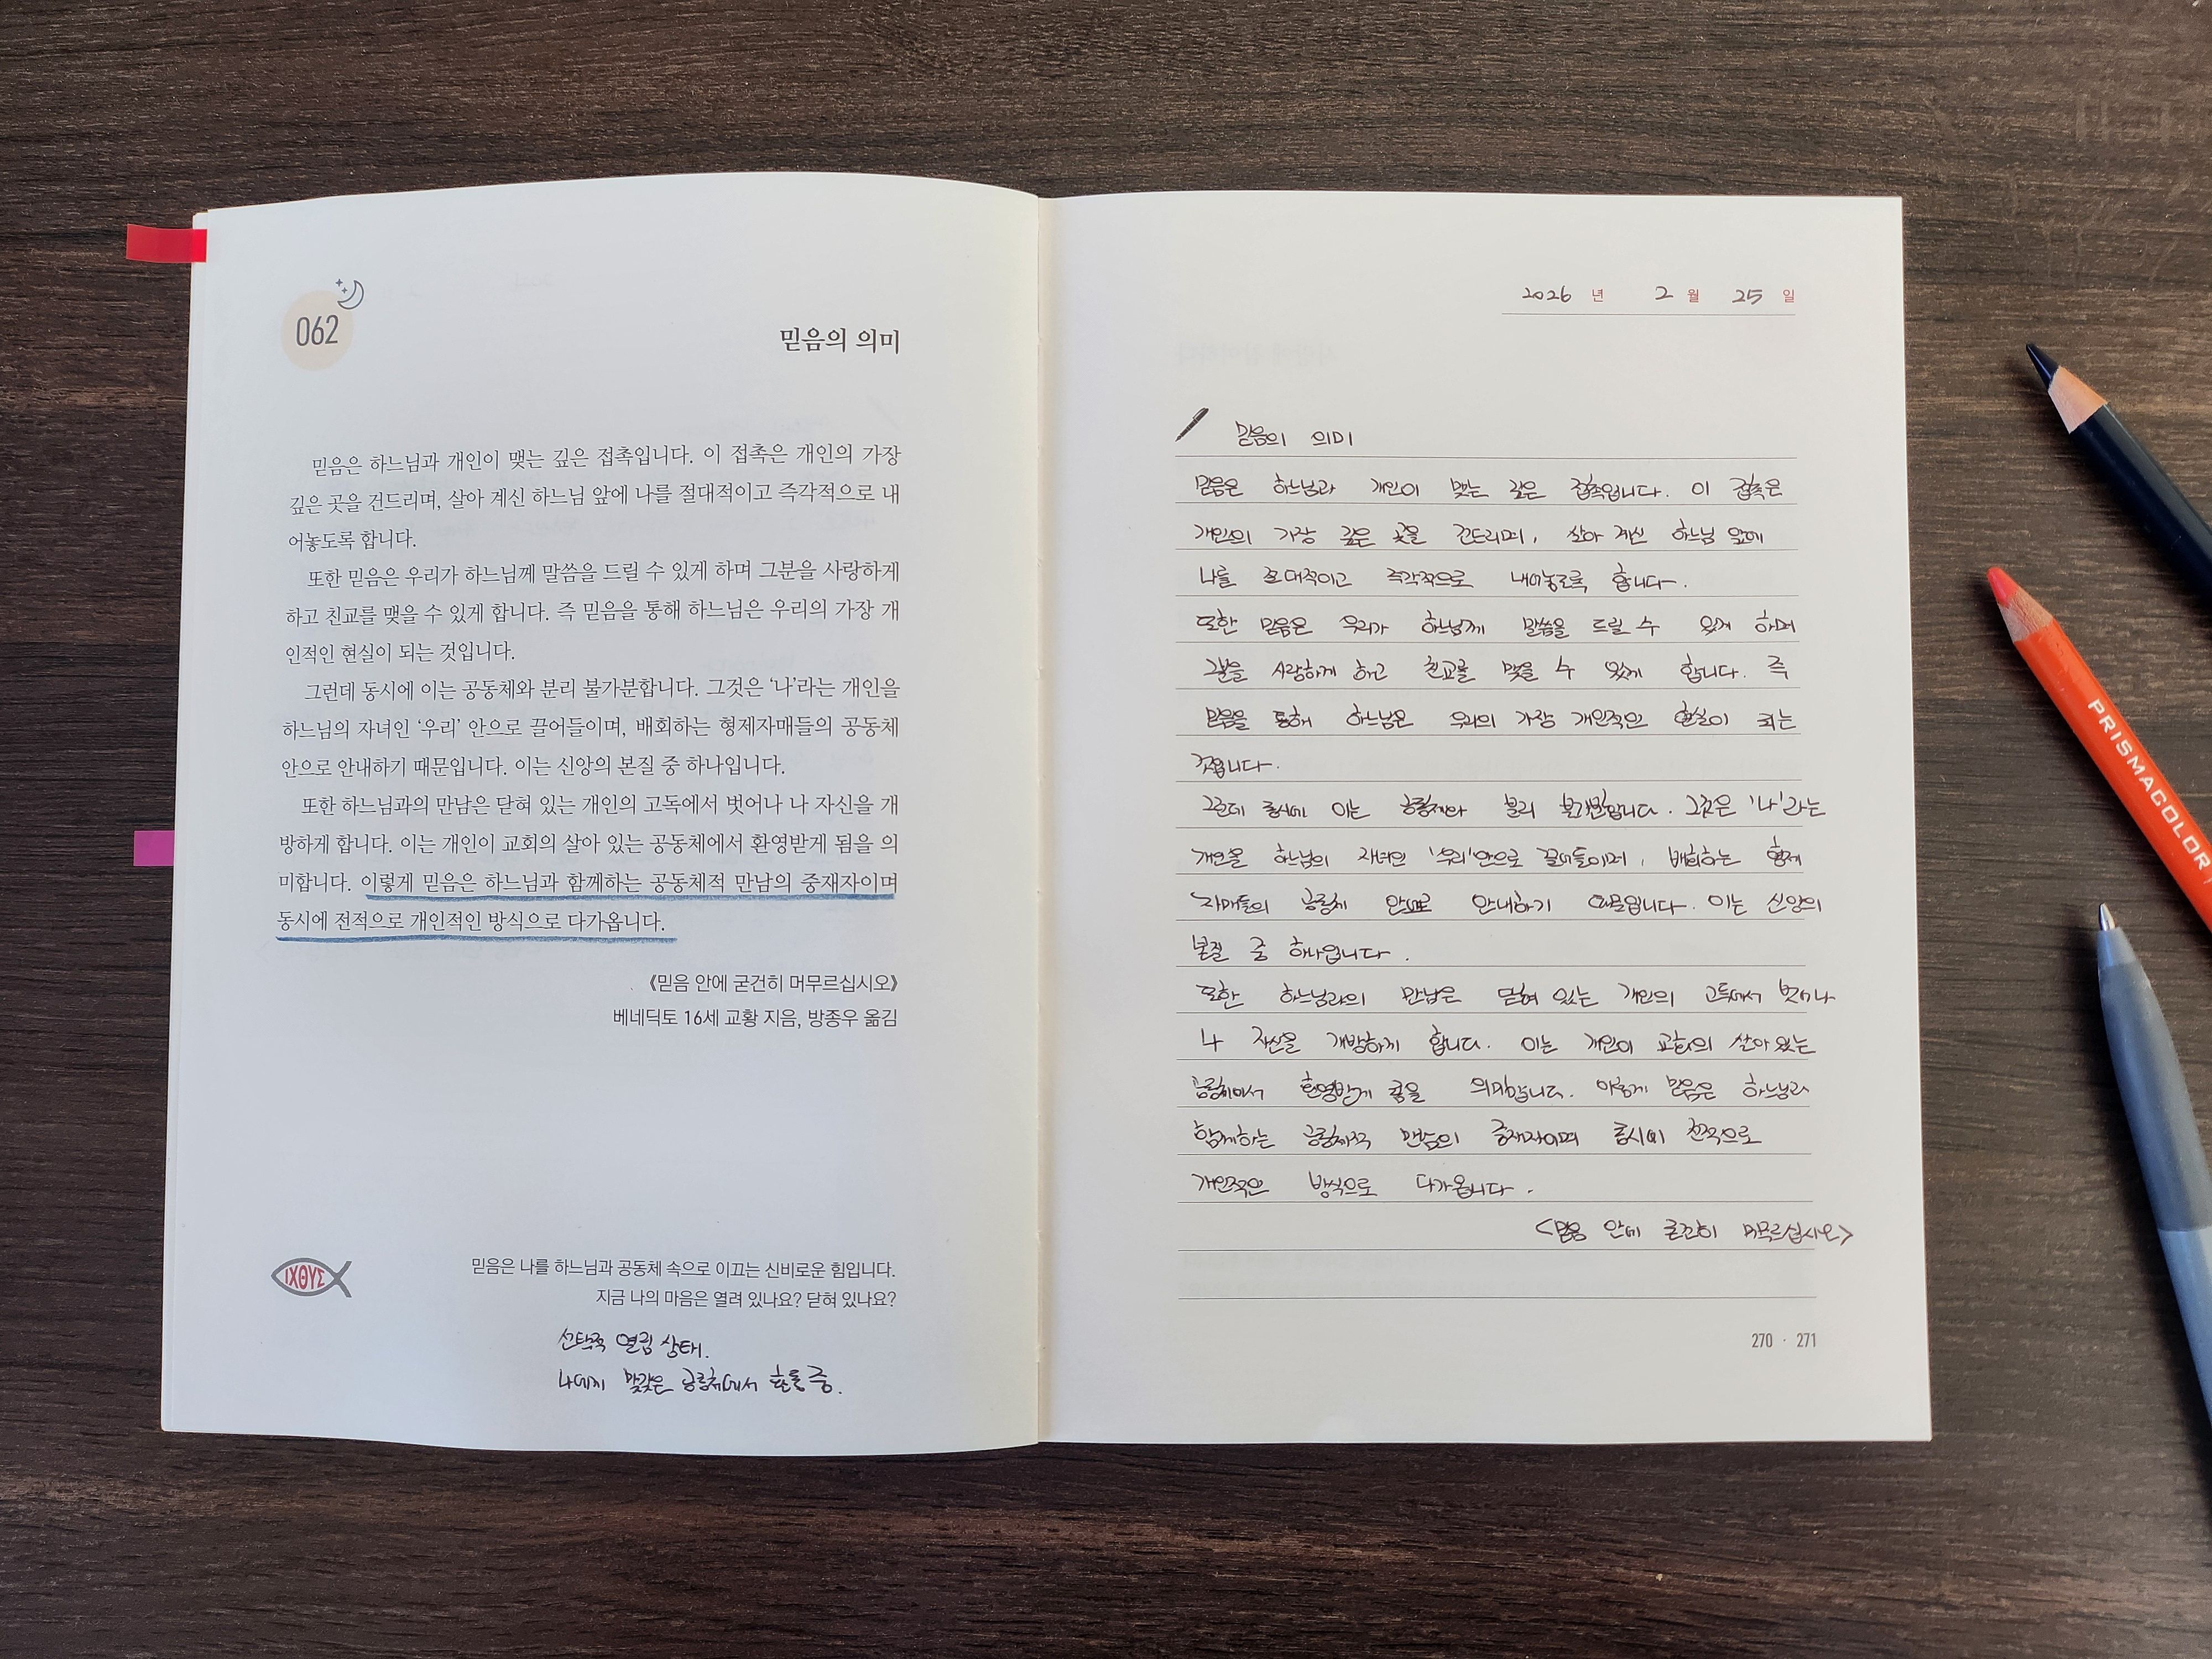 062
믿음의 의미
믿음은 하느님과 개인이 맺는 깊은 접촉입니다. 이 접촉은 개인의 가장
깊은 곳을 건드리며, 살아 계신 하느님 앞에 나를 절대적이고 즉각적으로 내
어놓도록 합니다.
또한 믿음은 우리가 하느님께 말씀을 드릴 수 있게 하며 그분을 사랑하게
하고 친교를 맺을 수 있게 합니다. 즉 믿음을 통해 하느님은 우리의 가장 개
인적인 현실이 되는 것입니다.
그런데 동시에 이는 공동체와 분리 불가분합니다. 그것은 ‘나’라는 개인을
하느님의 자녀인 ‘우리’ 안으로 끌어들이며, 배회하는 형제자매들의 공동체
안으로 안내하기 때문입니다. 이는 신앙의 본질 중 하나입니다.
또한 하느님과의 만남은 닫혀 있는 개인의 고독에서 벗어나 나 자신을 개
방하게 합니다. 이는 개인이 교회의 살아 있는 공동체에서 환영받게 됨을 의
미합니다. 이렇게 믿음은 하느님과 함께하는 공동체적 만남의 중재자이며
동시에 전적으로 개인적인 방식으로 다가옵니다.
《믿음 안에 굳건히 머무르십시오》
베네딕토 16세 교황 지음, 방종우 옮김
ΙΧΘΥΣ
믿음은 나를 하느님과 공동체 속으로 이끄는 신비로운 힘입니다.
지금 나의 마음은 열려 있나요? 닫혀 있나요?
선택적 열림 상태.
나에게 맞갖은 공동체에서 활동 중.
2026 년 2 월 25 일
믿음의 의미
믿음은 하느님과 개인이 맺는 깊은 접촉입니다. 이 접촉은
개인의 가장 깊은 곳을 건드리며, 살아 계신 하느님 앞에
나를 절대적이고 즉각적으로 내어놓도록 합니다.
또한 믿음은 우리가 하느님께 말씀을 드릴 수 있게 하며
그분을 사랑하게 하고 친교를 맺을 수 있게 합니다. 즉
믿음을 통해 하느님은 우리의 가장 개인적인 현실이 되는
것입니다.
그런데 동시에 이는 공동체와 분리 불가분합니다. 그것은 '나'라는
개인을 하느님의 자녀인 '우리' 안으로 끌어들이며, 배회하는 형제
자매들의 공동체 안으로 안내하기 때문입니다. 이는 신앙의
본질 중 하나입니다.
또한 하느님과의 만남은 닫혀 있는 개인의 고독에서 벗어나
나 자신을 개방하게 합니다. 이는 개인이 교회의 살아 있는
공동체에서 환영받게 됨을 의미합니다. 이렇게 믿음은 하느님과
함께하는 공동체적 만남의 중재자이며 동시에 전적으로
개인적인 방식으로 다가옵니다.
<믿음 안에 굳건히 머무르십시오>
270 · 271
PRISMACOLOR